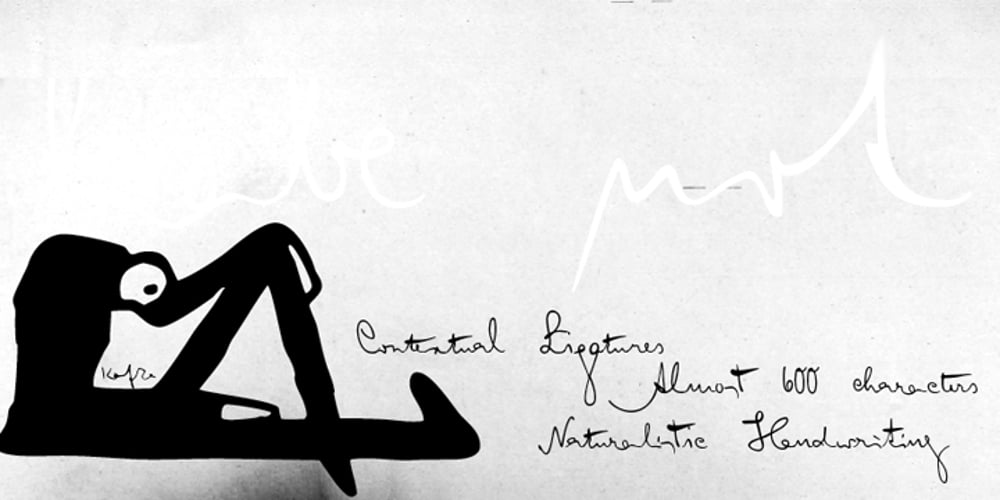 not
Contextual Ligatures
Kafka
Almost 600 characters
Naturalistic Handwriting